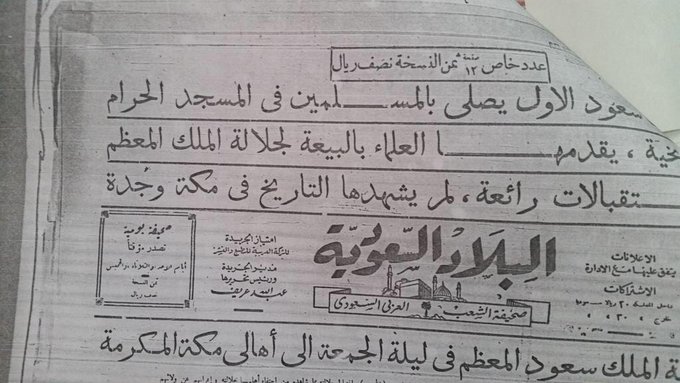 عدد خاص ١٢ صفحة ثمن النسخة نصف ريال
سعود الاول يصلى بالمسلمين فى المسجد الحرام
يقدمها العلماء بالبيعة لجلالة الملك المعظم
ستقبالات رائعة، لم يشهدها التاريخ فى مكة وجدة
الاعلانات
يتفق عليها مع الادارة
الاشتراكات
البلاد السعودية
صحيفة الشعب العربى السعودى
امتياز الجريدة
للشركة العربية للطبع والنشر
مدير الجريدة
ورئيس تحريرها
عبد الله عريف
صحيفة يومية
تصدر مؤقتاً
ثمن النسخة
نصف ريال
ة الملك سعود المعظم فى ليلة الجمعة الى أهالى مكة المكرمة